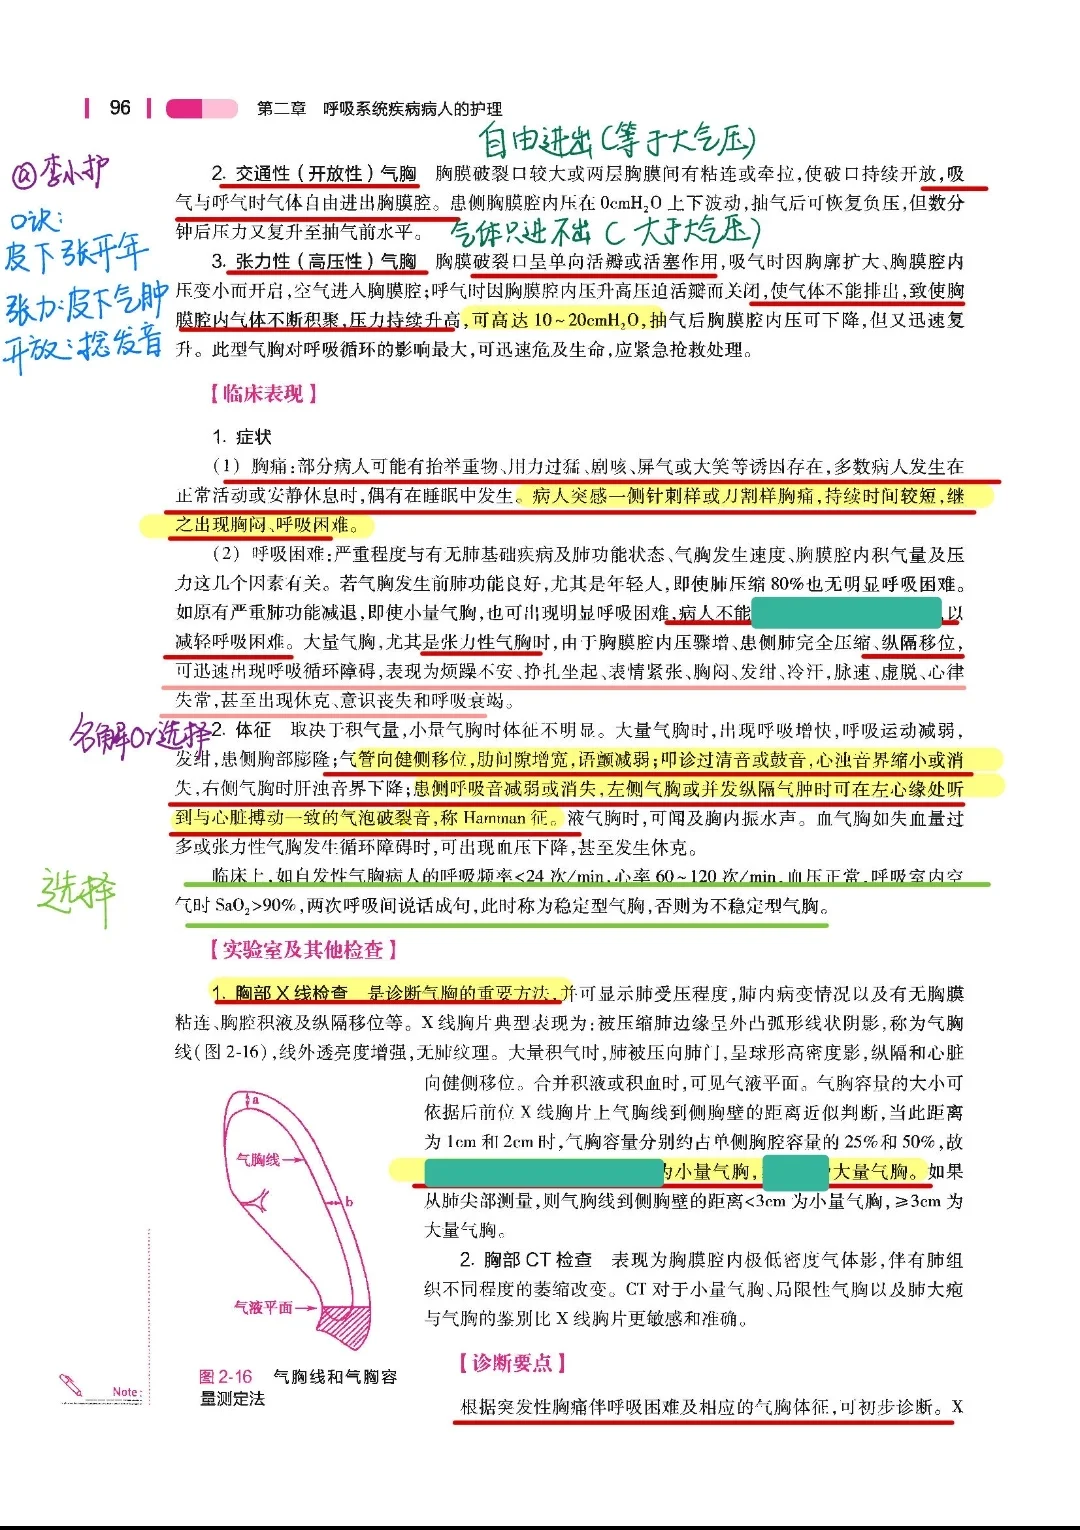 96 第二章 呼吸系统疾病病人的护理
自由进出（等于大气压）
@李小护
2. 交通性（开放性）气胸 胸膜破裂口较大或两层胸膜间有粘连或牵拉，使破口持续开放，吸
气与呼气时气体自由进出胸膜腔。患侧胸膜腔内压在 0cmH₂O 上下波动，抽气后可恢复负压，但数分
钟后压力又复升至抽气前水平。
气体只进不出（大于大气压）
口诀：
皮下张开年
张力：皮下气肿
开放：捻发音
3. 张力性（高压性）气胸 胸膜破裂口呈单向活瓣或活塞作用，吸气时因胸廓扩大、胸膜腔内
压变小而开启，空气进入胸膜腔；呼气时因胸膜腔内压升高压迫活瓣而关闭，使气体不能排出，致使胸
膜腔内气体不断积聚，压力持续升高，可高达 10~20cmH₂O，抽气后胸膜腔内压可下降，但又迅速复
升。此型气胸对呼吸循环的影响最大，可迅速危及生命，应紧急抢救处理。
【临床表现】
1. 症状
（1）胸痛：部分病人可能有抬举重物、用力过猛、剧咳、屏气或大笑等诱因存在，多数病人发生在
正常活动或安静休息时，偶有在睡眠中发生。病人突感一侧针刺样或刀割样胸痛，持续时间较短，继
之出现胸闷、呼吸困难。
（2）呼吸困难：严重程度与有无肺基础疾病及肺功能状态、气胸发生速度、胸膜腔内积气量及压
力这几个因素有关。若气胸发生前肺功能良好，尤其是年轻人，即使肺压缩 80%也无明显呼吸困难。
如原有严重肺功能减退，即使小量气胸，也可出现明显呼吸困难，病人不能 以
减轻呼吸困难。大量气胸，尤其是张力性气胸时，由于胸膜腔内压骤增、患侧肺完全压缩、纵隔移位，
可迅速出现呼吸循环障碍，表现为烦躁不安、挣扎坐起、表情紧张、胸闷、发绀、冷汗，脉速、虚脱、心律
失常，甚至出现休克、意识丧失和呼吸衰竭。
名解or选择
2. 体征 取决于积气量，小量气胸时体征不明显。大量气胸时，出现呼吸增快，呼吸运动减弱，
发绀，患侧胸部膨隆；气管向健侧移位，肋间隙增宽，语颤减弱；叩诊过清音或鼓音，心浊音界缩小或消
失，右侧气胸时肝浊音界下降；患侧呼吸音减弱或消失，左侧气胸或并发纵隔气肿时可在左心缘处听
到与心脏搏动一致的气泡破裂音，称 Hamman 征。液气胸时，可闻及胸内振水声。血气胸如失血量过
多或张力性气胸发生循环障碍时，可出现血压下降，甚至发生休克。
选择
临床上，如自发性气胸病人的呼吸频率<24 次/min，心率 60~120 次/min，血压正常，呼吸室内空
气时 SaO₂>90%，两次呼吸间说话成句，此时称为稳定型气胸，否则为不稳定型气胸。
【实验室及其他检查】
1. 胸部 X 线检查 是诊断气胸的重要方法，并可显示肺受压程度，肺内病变情况以及有无胸膜
粘连、胸腔积液及纵隔移位等。X 线胸片典型表现为：被压缩肺边缘呈外凸弧形线状阴影，称为气胸
线（图 2-16），线外透亮度增强，无肺纹理。大量积气时，肺被压向肺门，呈球形高密度影，纵隔和心脏
向健侧移位。合并积液或积血时，可见气液平面。气胸容量的大小可
依据后前位 X 线胸片上气胸线到侧胸壁的距离近似判断，当此距离
为 1cm 和 2cm 时，气胸容量分别约占单侧胸腔容量的 25%和 50%，故
为小量气胸， 大量气胸。如果
从肺尖部测量，则气胸线到侧胸壁的距离<3cm 为小量气胸，≥3cm 为
大量气胸。
2. 胸部 CT 检查 表现为胸膜腔内极低密度气体影，伴有肺组
织不同程度的萎缩改变。CT 对于小量气胸、局限性气胸以及肺大疱
与气胸的鉴别比 X 线胸片更敏感和准确。
a
气胸线
b
气液平面
图 2-16 气胸线和气胸容
量测定法
Note:
【诊断要点】
根据突发性胸痛伴呼吸困难及相应的气胸体征，可初步诊断。X